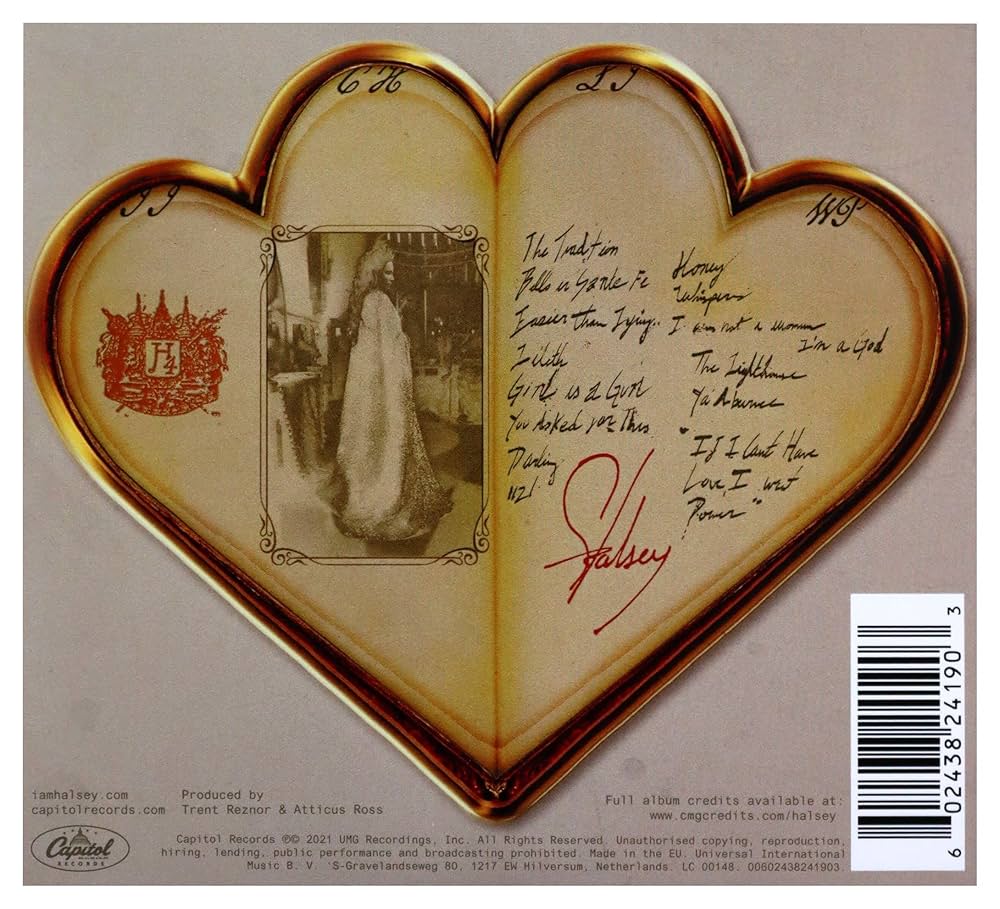 C H
L J
J J
W P
H4
The Tradition
Bells in Santa Fe
Easier than Lying..
Lilith
Girl is a Gun
You Asked for This
Darling
1121
Honey
Whispers
I am not a woman
I'm a God
The Lighthouse
Ya'Aburnee
"If I Can't Have
Love, I want
Power"
Halsey
iamhalsey.com
capitolrecords.com
Produced by
Trent Reznor & Atticus Ross
Full album credits available at:
www.cmgcredits.com/halsey
Capitol
RECORDS
Capitol Records ℗© 2021 UMG Recordings, Inc. All Rights Reserved. Unauthorised copying, reproduction,
hiring, lending, public performance and broadcasting prohibited. Made in the EU. Universal International
Music B. V. 'S-Gravelandseweg 80, 1217 EW Hilversum, Netherlands. LC 00148. 00602438241903.
6 02438 24190 3